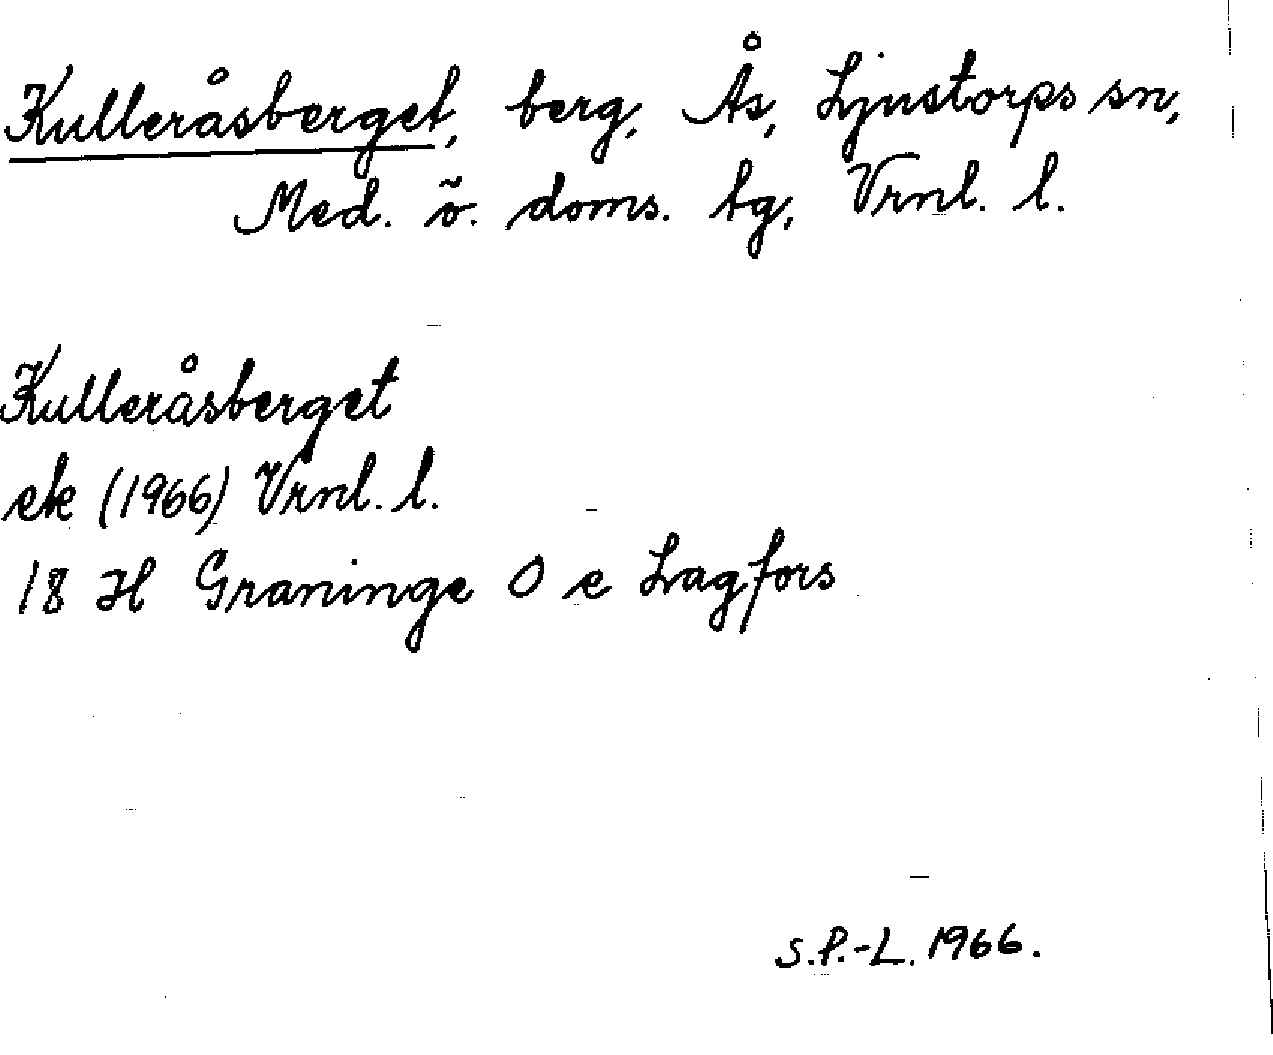 Kulleråsberget, berg, Ås, Ljustorps sn,
Med. ö. doms. tg, Vrnl. l.
Kulleråsberget
ek (1966) Vrnl. l.
18 H Graninge O e Lagfors
S.P.-L. 1966.